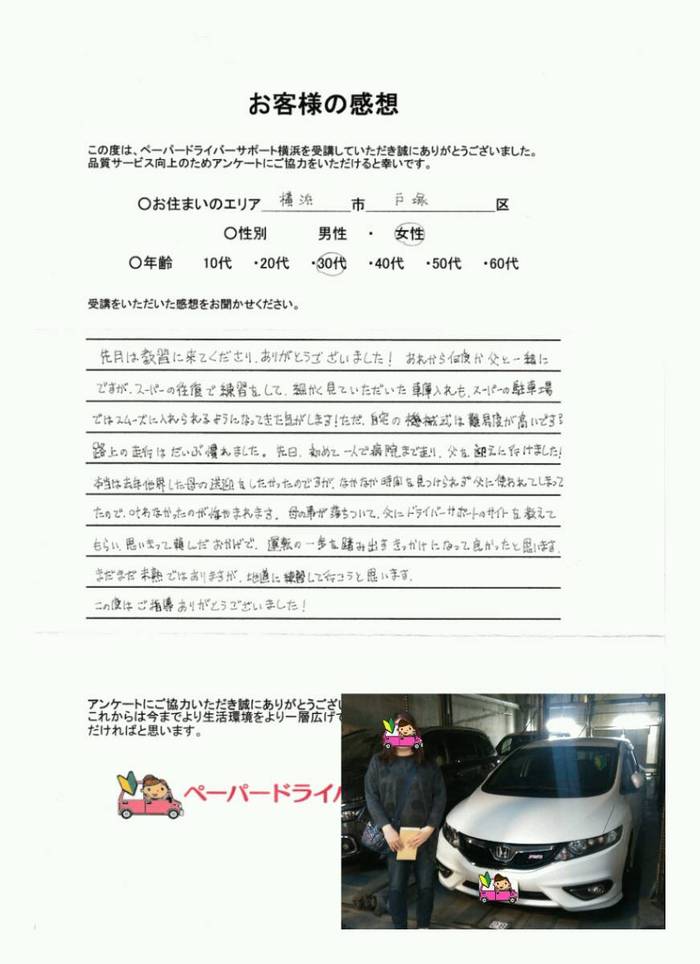 お客様の感想
この度は、ペーパードライバーサポート横浜を受講していただき誠にありがとうございました。
品質サービス向上のためアンケートにご協力をいただけると幸いです。
〇お住まいのエリア 横浜 市 戸塚 区
〇性別 男性 ・ 女性
〇年齢 10代 ・20代 ・30代 ・40代 ・50代 ・60代
受講をいただいた感想をお聞かせください。
先月は教習に来てくださり、ありがとうございました! あれから何度か父と一緒に
ですが、スーパーの往復で練習をして、細かく見ていただいた車庫入れも、スーパーの駐車場
ではスムーズに入れられるようになってきた気がします!ただ、自宅の機械式は難易度が高いです
路上の走行はだいぶ慣れました。先日、初めて一人で病院まで走り、父を迎えに行けました!
本当は去年他界した母の送迎をしたかったのですが、なかなか時間を見つけられず父に使われてしまって
たので、叶わなかったのが悔やまれます。母の事が落ちついて、父にドライバーサポートのサイトを教えて
もらい、思いきって頼んだおかげで、運転の一歩を踏み出すきっかけになって良かったと思います。
まだまだ未熟ではありますが、地道に練習して行こうと思います。
この度はご指導ありがとうございました!
アンケートにご協力いただき誠にありがとうござい
これからは今までより生活環境をより一層広げて
だければと思います。
ペーパードライバ